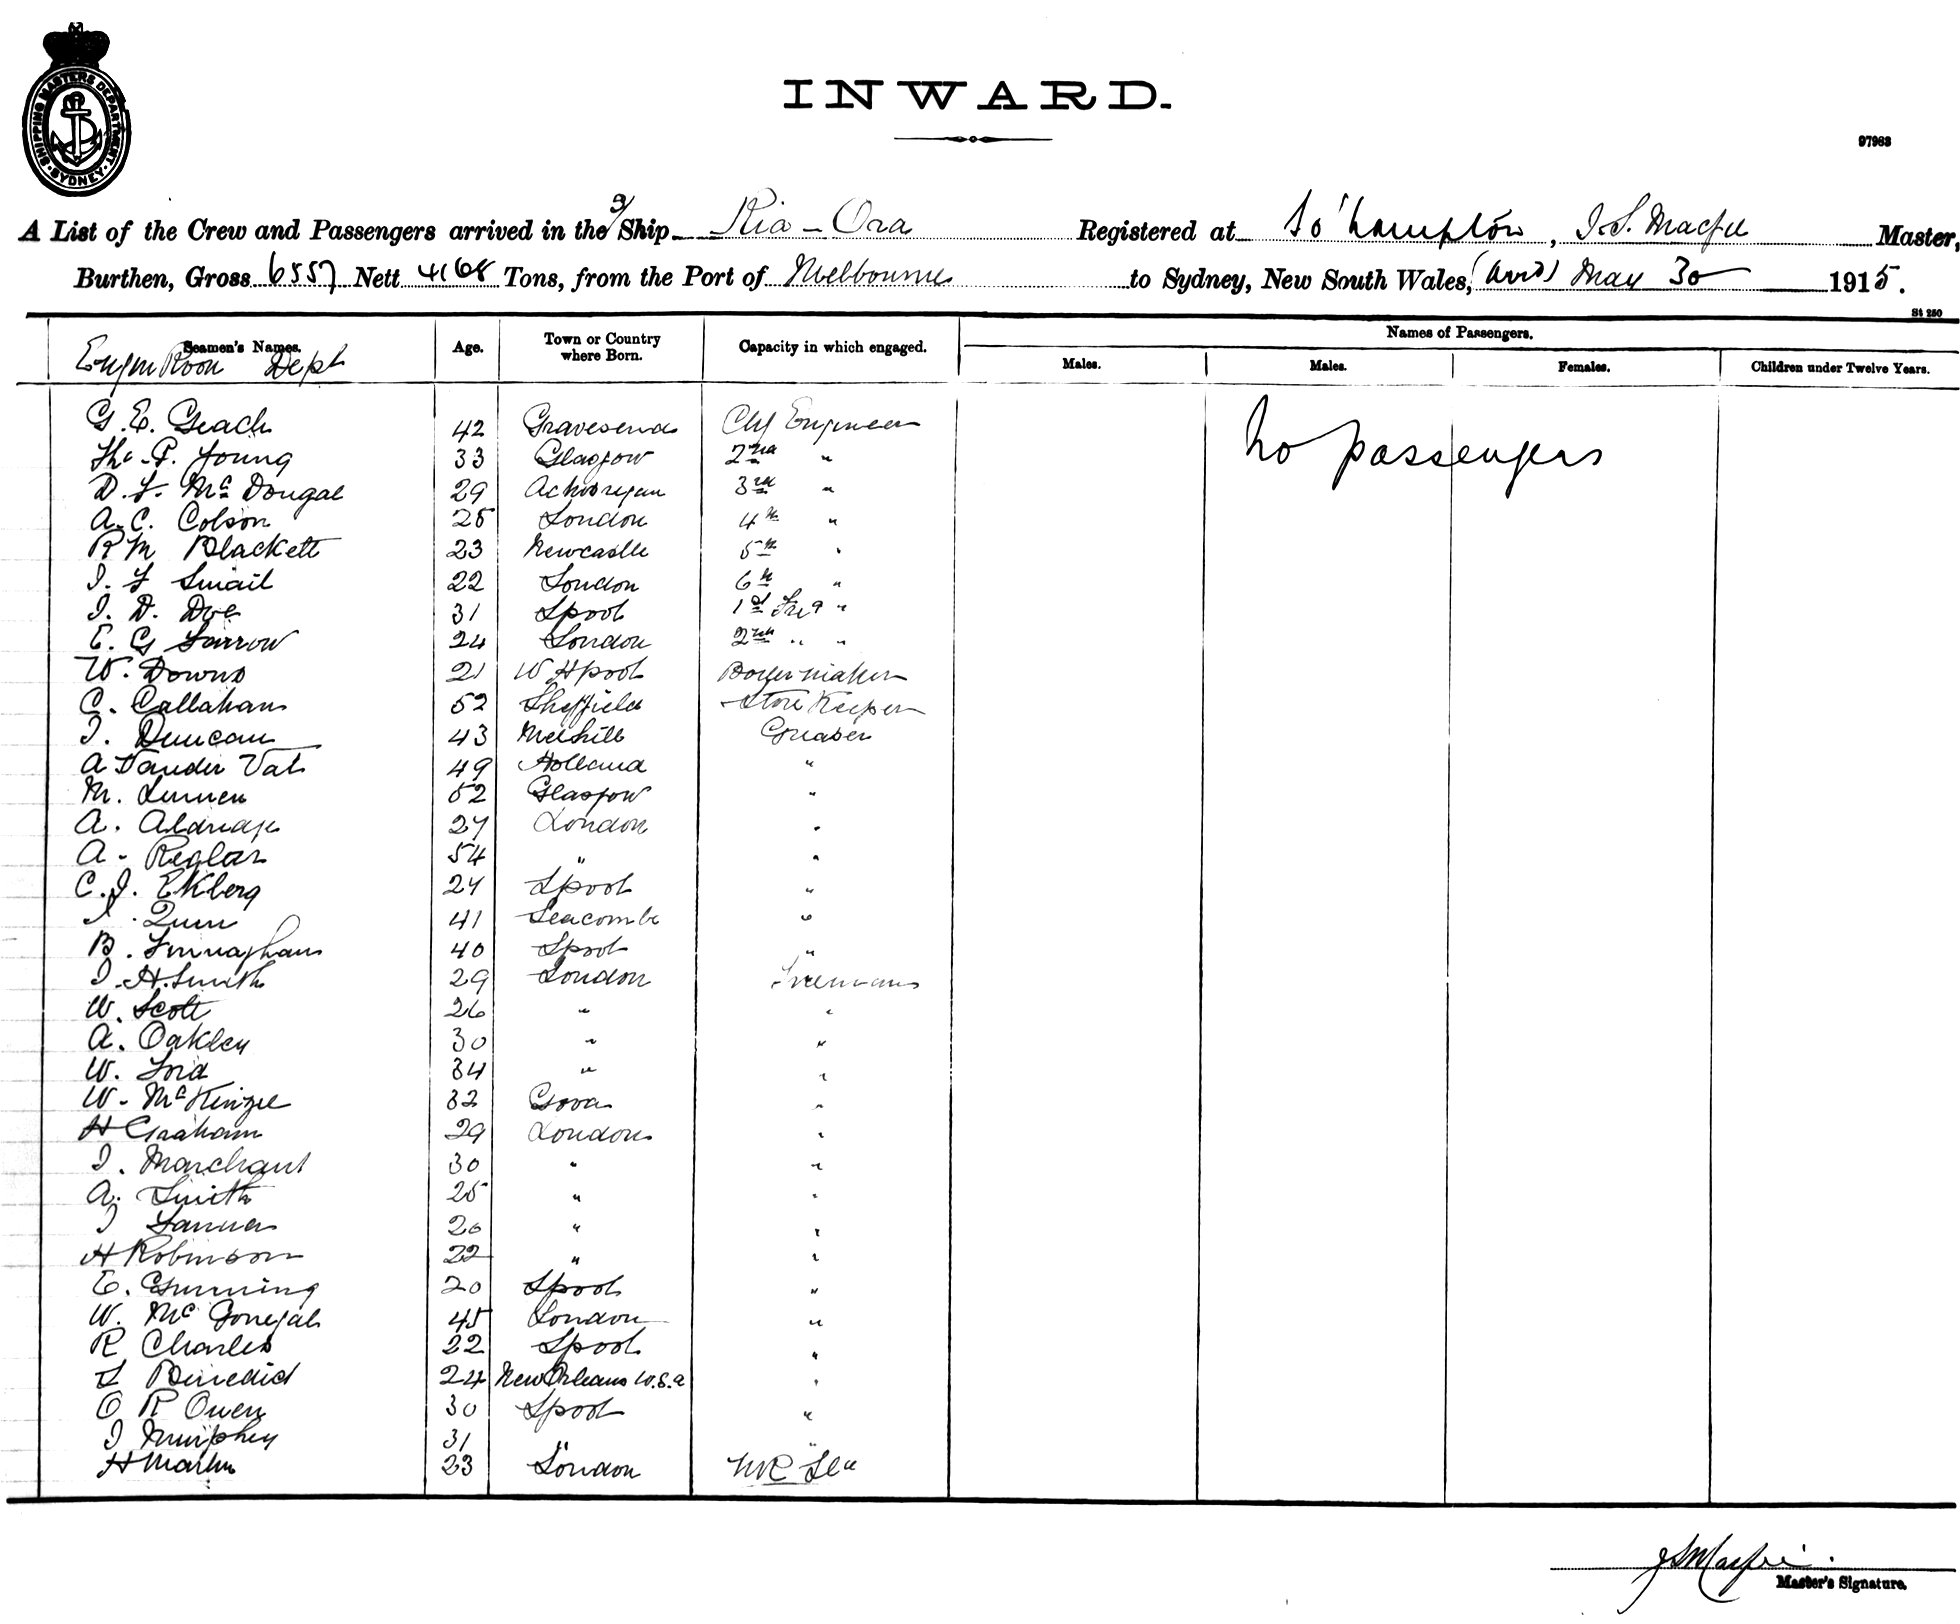 SHIPPING MASTERS DEPARTMENT. SYDNEY
INWARD.
97983
A List of the Crew and Passengers arrived in the S/Ship Kia-Ora Registered at So'hampton, J.S. Macfie Master,
Burthen, Gross 6557 Nett 4168 Tons, from the Port of Melbourne to Sydney, New South Wales, (Arrd) May 30 1915.
St 250
Seamen's Names. Age. Town or Country where Born. Capacity in which engaged. Names of Passengers.
Males. Males. Females. Children under Twelve Years.
Engine Room Dept
G. E. Geach 42 Gravesend Chf Engineer
No passengers
Tho. P. Young 33 Glasgow 2nd "
D. F. McDougal 29 3rd "
A. C. Colson 25 London 4th "
R M Blackett 23 Newcastle 5th "
J. F Smail 22 London 6th "
J. D. Doe 31 Lpool 1st Frig "
E. G Farrow 24 London 2nd " "
W. Downs 21 W Hpool Boilermaker
C. Callahan 52 Sheffield Store Keeper
J. Duncan 43 Greaser
A Vander Vat 49 Holland "
M. 52 Glasgow "
A. Aldridge 27 London "
A. Reglar 54 " "
C. J. Ekberg 27 Lpool "
J. Quin 41 Seacombe "
B. Finnaghan 40 Lpool "
J. H. Smith 29 London Fireman
W. Scott 26 " "
A. Oakley 30 " "
W. Ford 34 " "
W. McKinzie 32 "
H Graham 29 London "
J. Marchant 30 " "
A. Smith 25 " "
J 20 " "
H Robinson 22 " "
E. Gunning 20 Lpool "
W. McGonegal 45 London "
R Charles 22 Lpool "
S Benedict 24 New Orleans U.S.A "
O R Owen 30 Lpool "
J Murphey 31 " "
H Martin 23 London
J S Macfie.
Master's Signature.